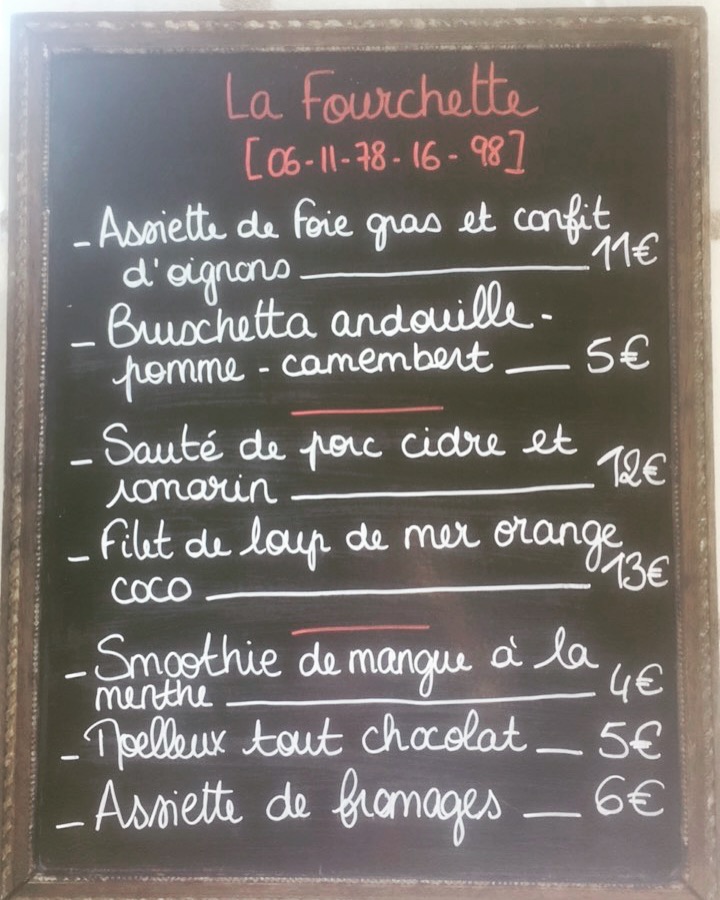 La Fourchette
[06-11-78-16-98]
- Assiette de foie gras et confit
d'oignons 11€
- Bruschetta andouille-
pomme - camembert 5€
- Sauté de porc cidre et
romarin 12€
- Filet de loup de mer orange
coco 13€
- Smoothie de mangue à la
menthe 4€
- Moelleux tout chocolat 5€
- Assiette de fromages 6€